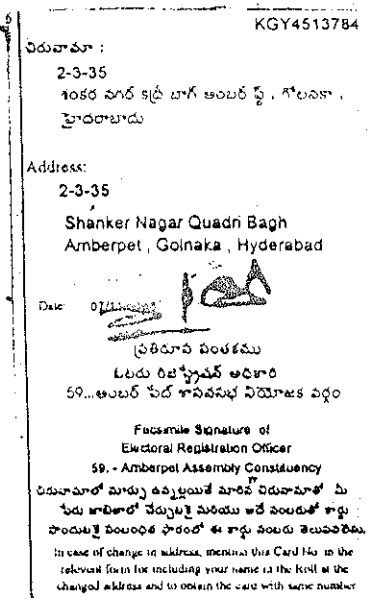 KGY4513784
చిరునామా :
2-3-35
శంకర నగర్ కద్రీ బాగ్ అంబర్ పేట్ , గోలనాకా ,
హైదరాబాదు
Address:
2-3-35
Shanker Nagar Quadri Bagh
Amberpet , Golnaka , Hyderabad
Date:
ప్రతిరూప సంతకము
ఓటరు రిజిస్ట్రేషన్ అధికారి
59...అంబర్ పేట్ శాసనసభ నియోజక వర్గం
Facsimile Signature of
Electoral Registration Officer
59. - Amberpet Assembly Constituency
చిరునామాలో మార్పు ఉన్నట్లయితే మారిన చిరునామాతో మీ
పేరు జాబితాలో చేర్చుటకై మరియు అదే నంబరుతో కార్డు
పొందుటకై సంబంధిత ఫారంలో ఈ కార్డు నంబరు తెలుపవలెను.
In case of change in address, mention this Card No. in the
relevent form for including your name in the Roll at the
changed address and to obtain the card with same number